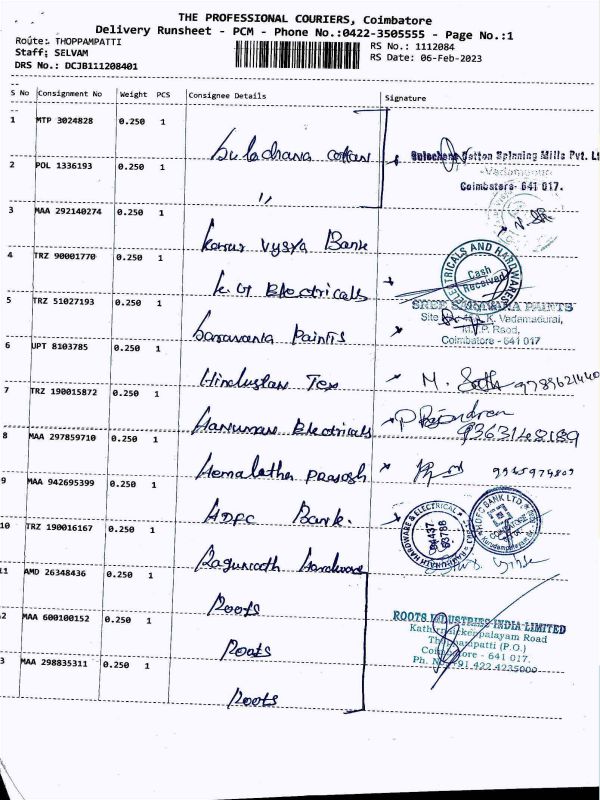 THE PROFESSIONAL COURIERS, Coimbatore
Delivery Runsheet - PCM - Phone No.:0422-3505555 - Page No.:1
Route: THOPPAMPATTI
RS No.: 1112084
Staff: SELVAM
RS Date: 06-Feb-2023
DRS No.: DCJB111208401
S No Consignment No Weight PCS Consignee Details Signature
1 MTP 3024828 0.250 1 Sulochana cotton
Sulochana Cotton Spinning Mills Pvt. Lt
Vadamadurai
Coimbatore- 641 017.
2 POL 1336193 0.250 1 〃
3 MAA 292140274 0.250 1 Karur Vysya Bank
4 TRZ 90001770 0.250 1 K.G Electricals
ELECTRICALS AND HARDWARES
Cash Received
5 TRZ 51027193 0.250 1 Saravana Paints
SREE SARAVANA PAINTS
Site No. K. Vadamadurai,
M.T.P. Road,
Coimbatore - 641 017
6 UPT 8103785 0.250 1 Hindustan Tex
9789621440
7 TRZ 190015872 0.250 1 Hanuman Electricals
P Rajendran
9363148189
8 MAA 297859710 0.250 1 Hemalatha Prakash
9945974809
9 MAA 942695399 0.250 1 HDFC Bank.
HDFC BANK LTD
10 TRZ 190016167 0.250 1 Ragunath Hardware
RAGHUNATH HARDWARE & ELECTRICAL
94437
63788
11 AMD 26348436 0.250 1 Roots
ROOTS INDUSTRIES INDIA LIMITED
Kathirnaickenpalayam Road
Thoppampatti (P.O.)
Coimbatore - 641 017.
Ph. No. +91 422 4235000
12 MAA 600100152 0.250 1 Roots
3 MAA 298835311 0.250 1 Roots